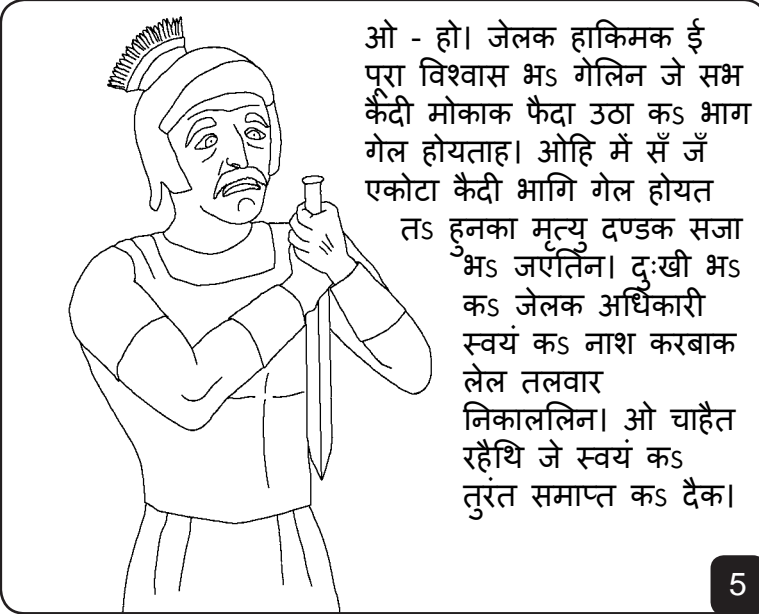 ओ - हो। जेलक हाकिमक ई
पूरा विश्वास भऽ गेलिन जे सभ
कैदी मोकाक फैदा उठा कऽ भाग
गेल होयताह। ओहि में सँ जँ
एकोटा कैदी भागि गेल होयत
तऽ हुनका मृत्यु दण्डक सजा
भऽ जएतिन। दुःखी भऽ
कऽ जेलक अधिकारी
स्वयं कऽ नाश करबाक
लेल तलवार
निकाललिन। ओ चाहैत
रहैथि जे स्वयं कऽ
तुरंत समाप्त कऽ दैक।
5